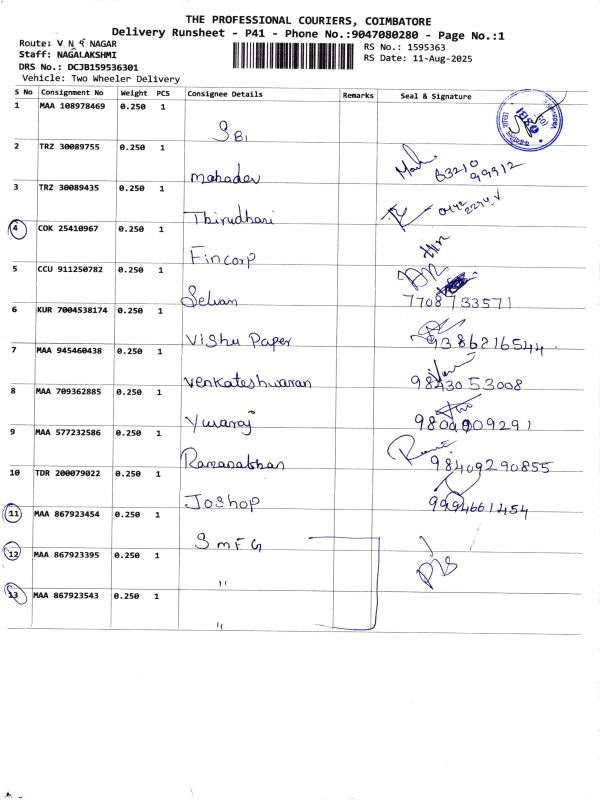 THE PROFESSIONAL COURIERS, COIMBATORE
Delivery Runsheet - P41 - Phone No.:9047080280 - Page No.:1
Route: V N R NAGAR
RS No.: 1595363
Staff: NAGALAKSHMI
RS Date: 11-Aug-2025
DRS No.: DCJB159536301
Vehicle: Two Wheeler Delivery
S No Consignment No Weight PCS Consignee Details Remarks Seal & Signature
1 MAA 108978469 0.250 1 SBI
2 TRZ 30089755 0.250 1 mahadev 63210
99912
3 TRZ 30089435 0.250 1 Thirudhari
4 COK 25410967 0.250 1 Fincorp
5 CCU 911250782 0.250 1 Selvan 7708733571
6 KUR 7004538174 0.250 1 Vishu Paper 9386216544
7 MAA 945460438 0.250 1 Venkateshwaran 9843053008
8 MAA 709362885 0.250 1 Yuvaraj
9 MAA 577232586 0.250 1 98409290855
10 TDR 200079022 0.250 1 Joshop 9994661454
11 MAA 867923454 0.250 1 SmFG
12 MAA 867923395 0.250 1 "
13 MAA 867923543 0.250 1 "